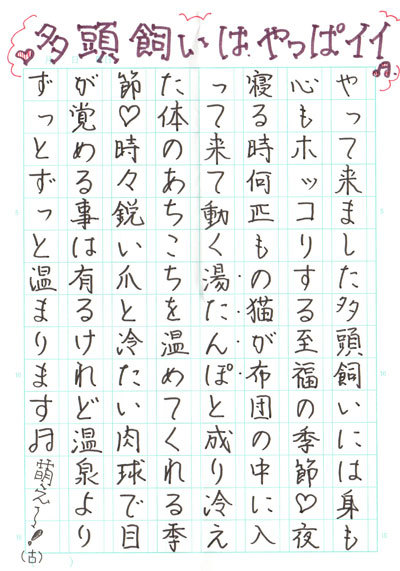 多頭飼いはやっぱイイ♬
やって来ました多頭飼いには身も
心もホッコりする至福の季節♡夜
寝る時何匹もの猫が布団の中に入
って来て動く湯たんぽと成り冷え
た体のあちこちを温めてくれる季
節♡時々鋭い爪と冷たい肉球で目
が覚める事は有るけれど温泉より
ずっとずっと温まります♬萌え〜!
(古)